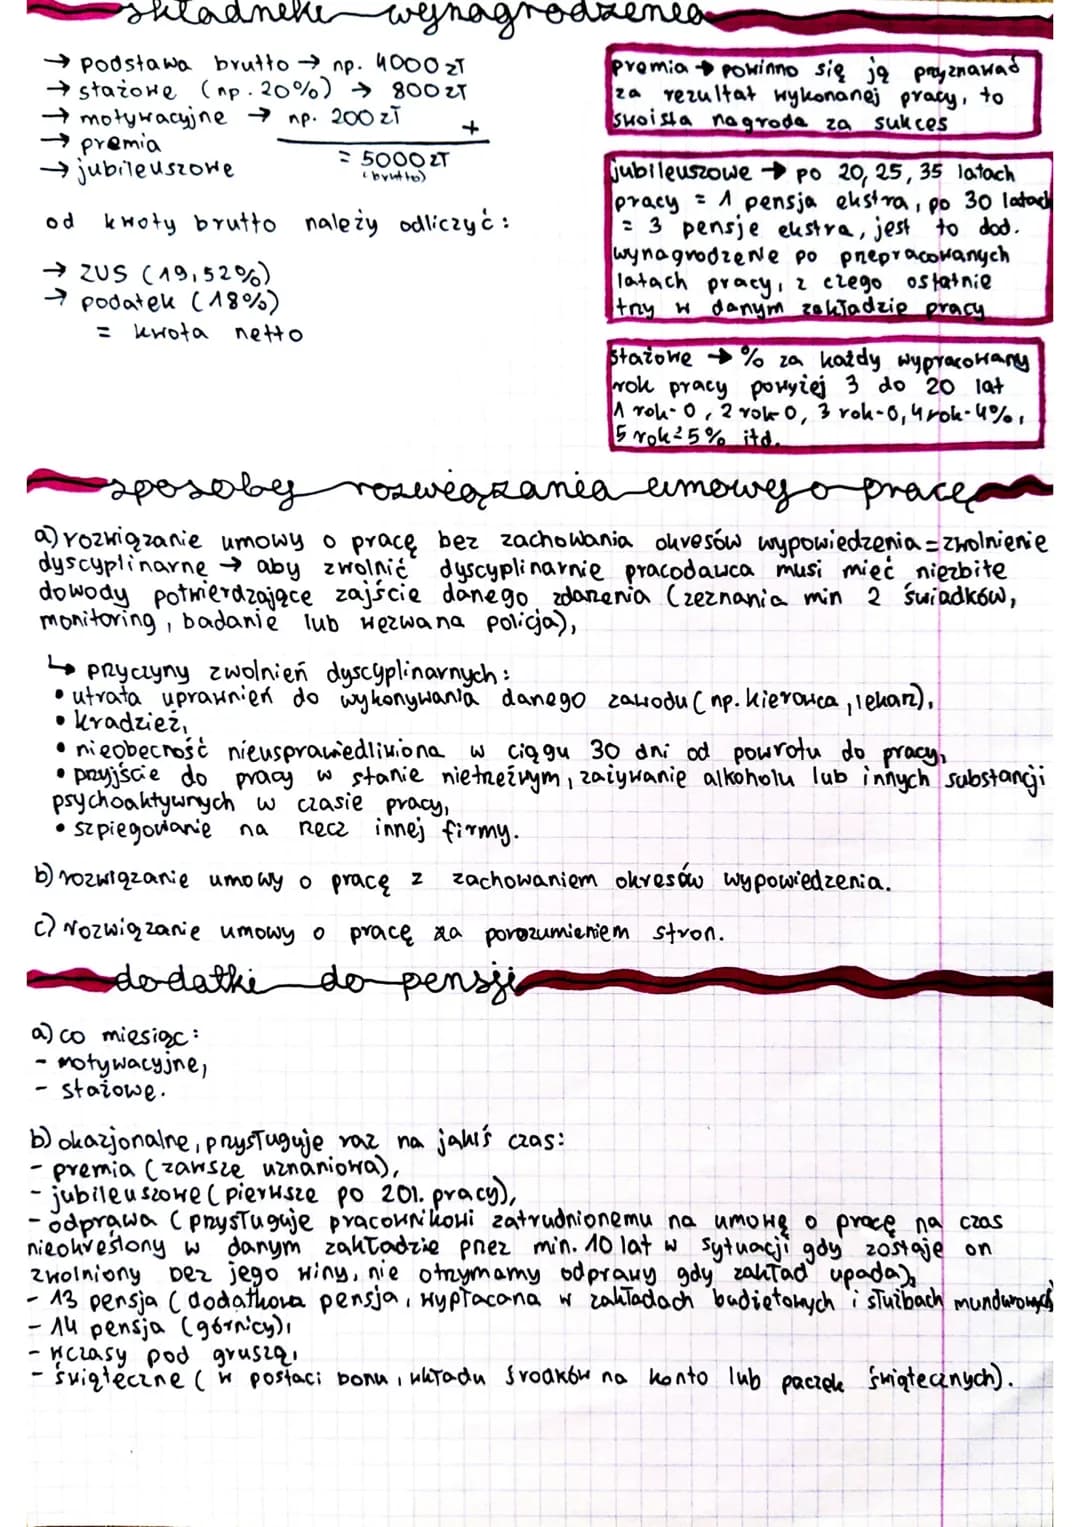 składniki wynagrodzenia
→ podstawa brutto → np. 4000 zł
→ stażowe (np. 20%) → 800 zł
→ motywacyjne → np. 200 zł
+
→ premia
= 5000 zł
(brutto)
→ jubileuszowe
od kwoty brutto należy odliczyć:
→ ZUS (19,52%)
→ podatek (18%)
= kwota netto
premia → powinno się ją przyznawać
za rezultat wykonanej pracy, to
swoista nagroda za sukces
jubileuszowe → po 20, 25, 35 latach
pracy = 1 pensja ekstra, po 30 latach
= 3 pensje ekstra, jest to dod.
wynagrodzenie po przepracowanych
latach pracy, z czego ostatnie
trzy w danym zakładzie pracy
stażowe → % za każdy wypracowany
rok pracy powyżej 3 do 20 lat
1 rok-0, 2 rok-0, 3 rok-0, 4 rok-4%,
5 rok=5% itd.
sposoby rozwiązania umowy o pracę
a) rozwiązanie umowy o pracę bez zachowania okresów wypowiedzenia = zwolnienie
dyscyplinarne → aby zwolnić dyscyplinarnie pracodawca musi mieć niezbite
dowody potwierdzające zajście danego zdarzenia (zeznania min 2 świadków,
monitoring, badanie lub wezwana policja),
↳ przyczyny zwolnień dyscyplinarnych:
• utrata uprawnień do wykonywania danego zawodu (np. kierowca, lekarz),
• kradzież,
• nieobecność nieusprawiedliwiona w ciągu 30 dni od powrotu do pracy,
• przyjście do pracy w stanie nietrzeźwym, zażywanie alkoholu lub innych substancji
psychoaktywnych w czasie pracy,
• szpiegowanie na rzecz innej firmy.
b) rozwiązanie umowy o pracę z zachowaniem okresów wypowiedzenia.
c) rozwiązanie umowy o pracę za porozumieniem stron.
dodatki do pensji
a) co miesiąc:
- motywacyjne,
- stażowe.
b) okazjonalne, przysługuje raz na jakiś czas:
- premia (zawsze uznaniowa),
- jubileuszowe (pierwsze po 20l. pracy),
- odprawa (przysługuje pracownikowi zatrudnionemu na umowę o pracę na czas
nieokreślony w danym zakładzie przez min. 10 lat w sytuacji gdy zostaje on
zwolniony bez jego winy, nie otrzymamy odprawy gdy zakład upada),
- 13 pensja (dodatkowa pensja, wypłacana w zakładach budżetowych i służbach mundurowych
- 14 pensja (górnicy),
- wczasy pod gruszą,
- świąteczne (w postaci bonu, wkładu środków na konto lub paczek świątecznych).